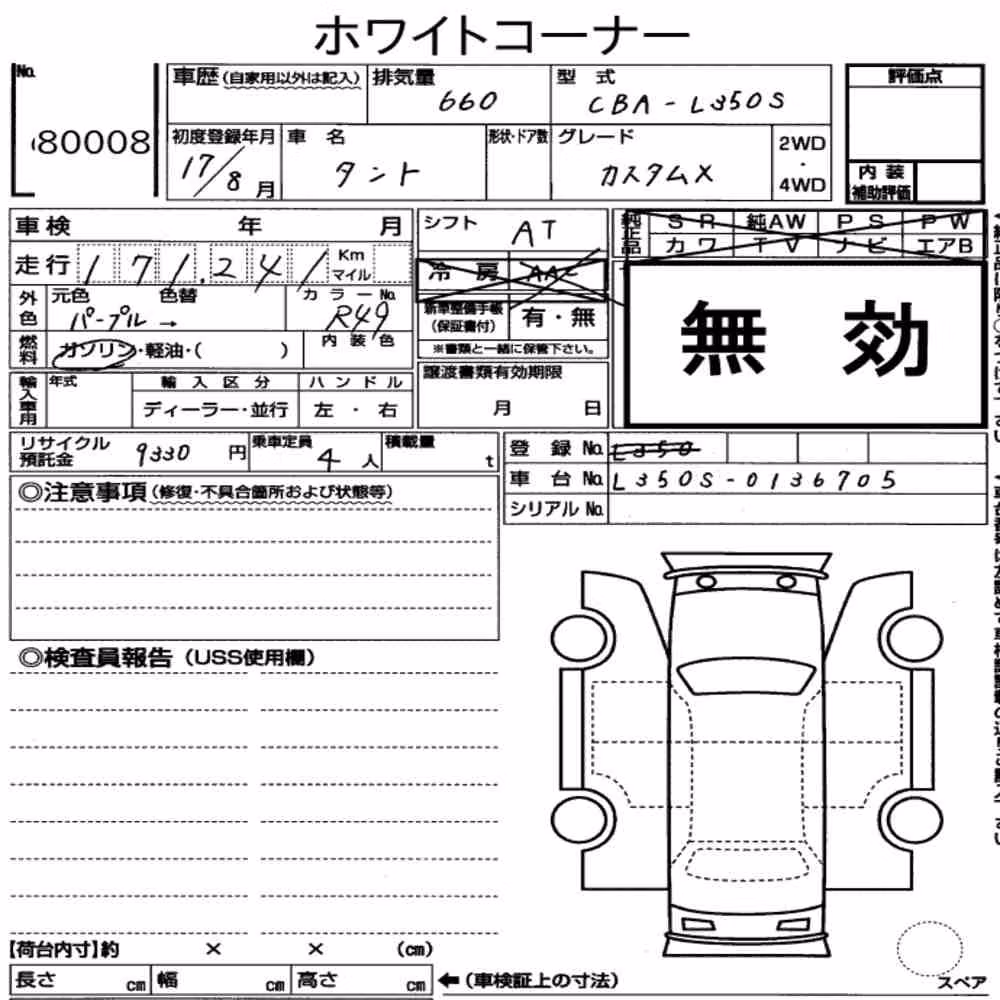 ホワイトコーナー
No.
80008
車歴 (自家用以外は記入)
排気量
660
型 式
CBA - L350S
評価点
初度登録年月
17/8月
車 名
タント
形状・ドア数
グレード
カスタムX
2WD
・
4WD
内装
補助評価
車検 年 月
シフト
AT
純正品
SR 純AW PS PW
カワ TV ナビ エアB
走行 171.241 Km マイル
冷房 AAC
無 効
外色
元色 色替
パープル →
カラーNo.
R49
新車整備手帳
(保証書付)
有・無
燃料
ガソリン・軽油・( )
内装色
※書類と一緒に保管下さい。
輸入車用
年式
輸入区分
ハンドル
ディーラー・並行
左・右
譲渡書類有効期限
月 日
リサイクル
預託金
9330 円
乗車定員
4 人
積載量
t
登録No.
L350
車台No.
L350S-0136705
シリアルNo.
◎注意事項 (修復・不具合箇所および状態等)
◎検査員報告 (USS使用欄)
【荷台内寸】約 × × (cm)
長さ cm 幅 cm 高さ cm
← (車検証上の寸法)
スペア